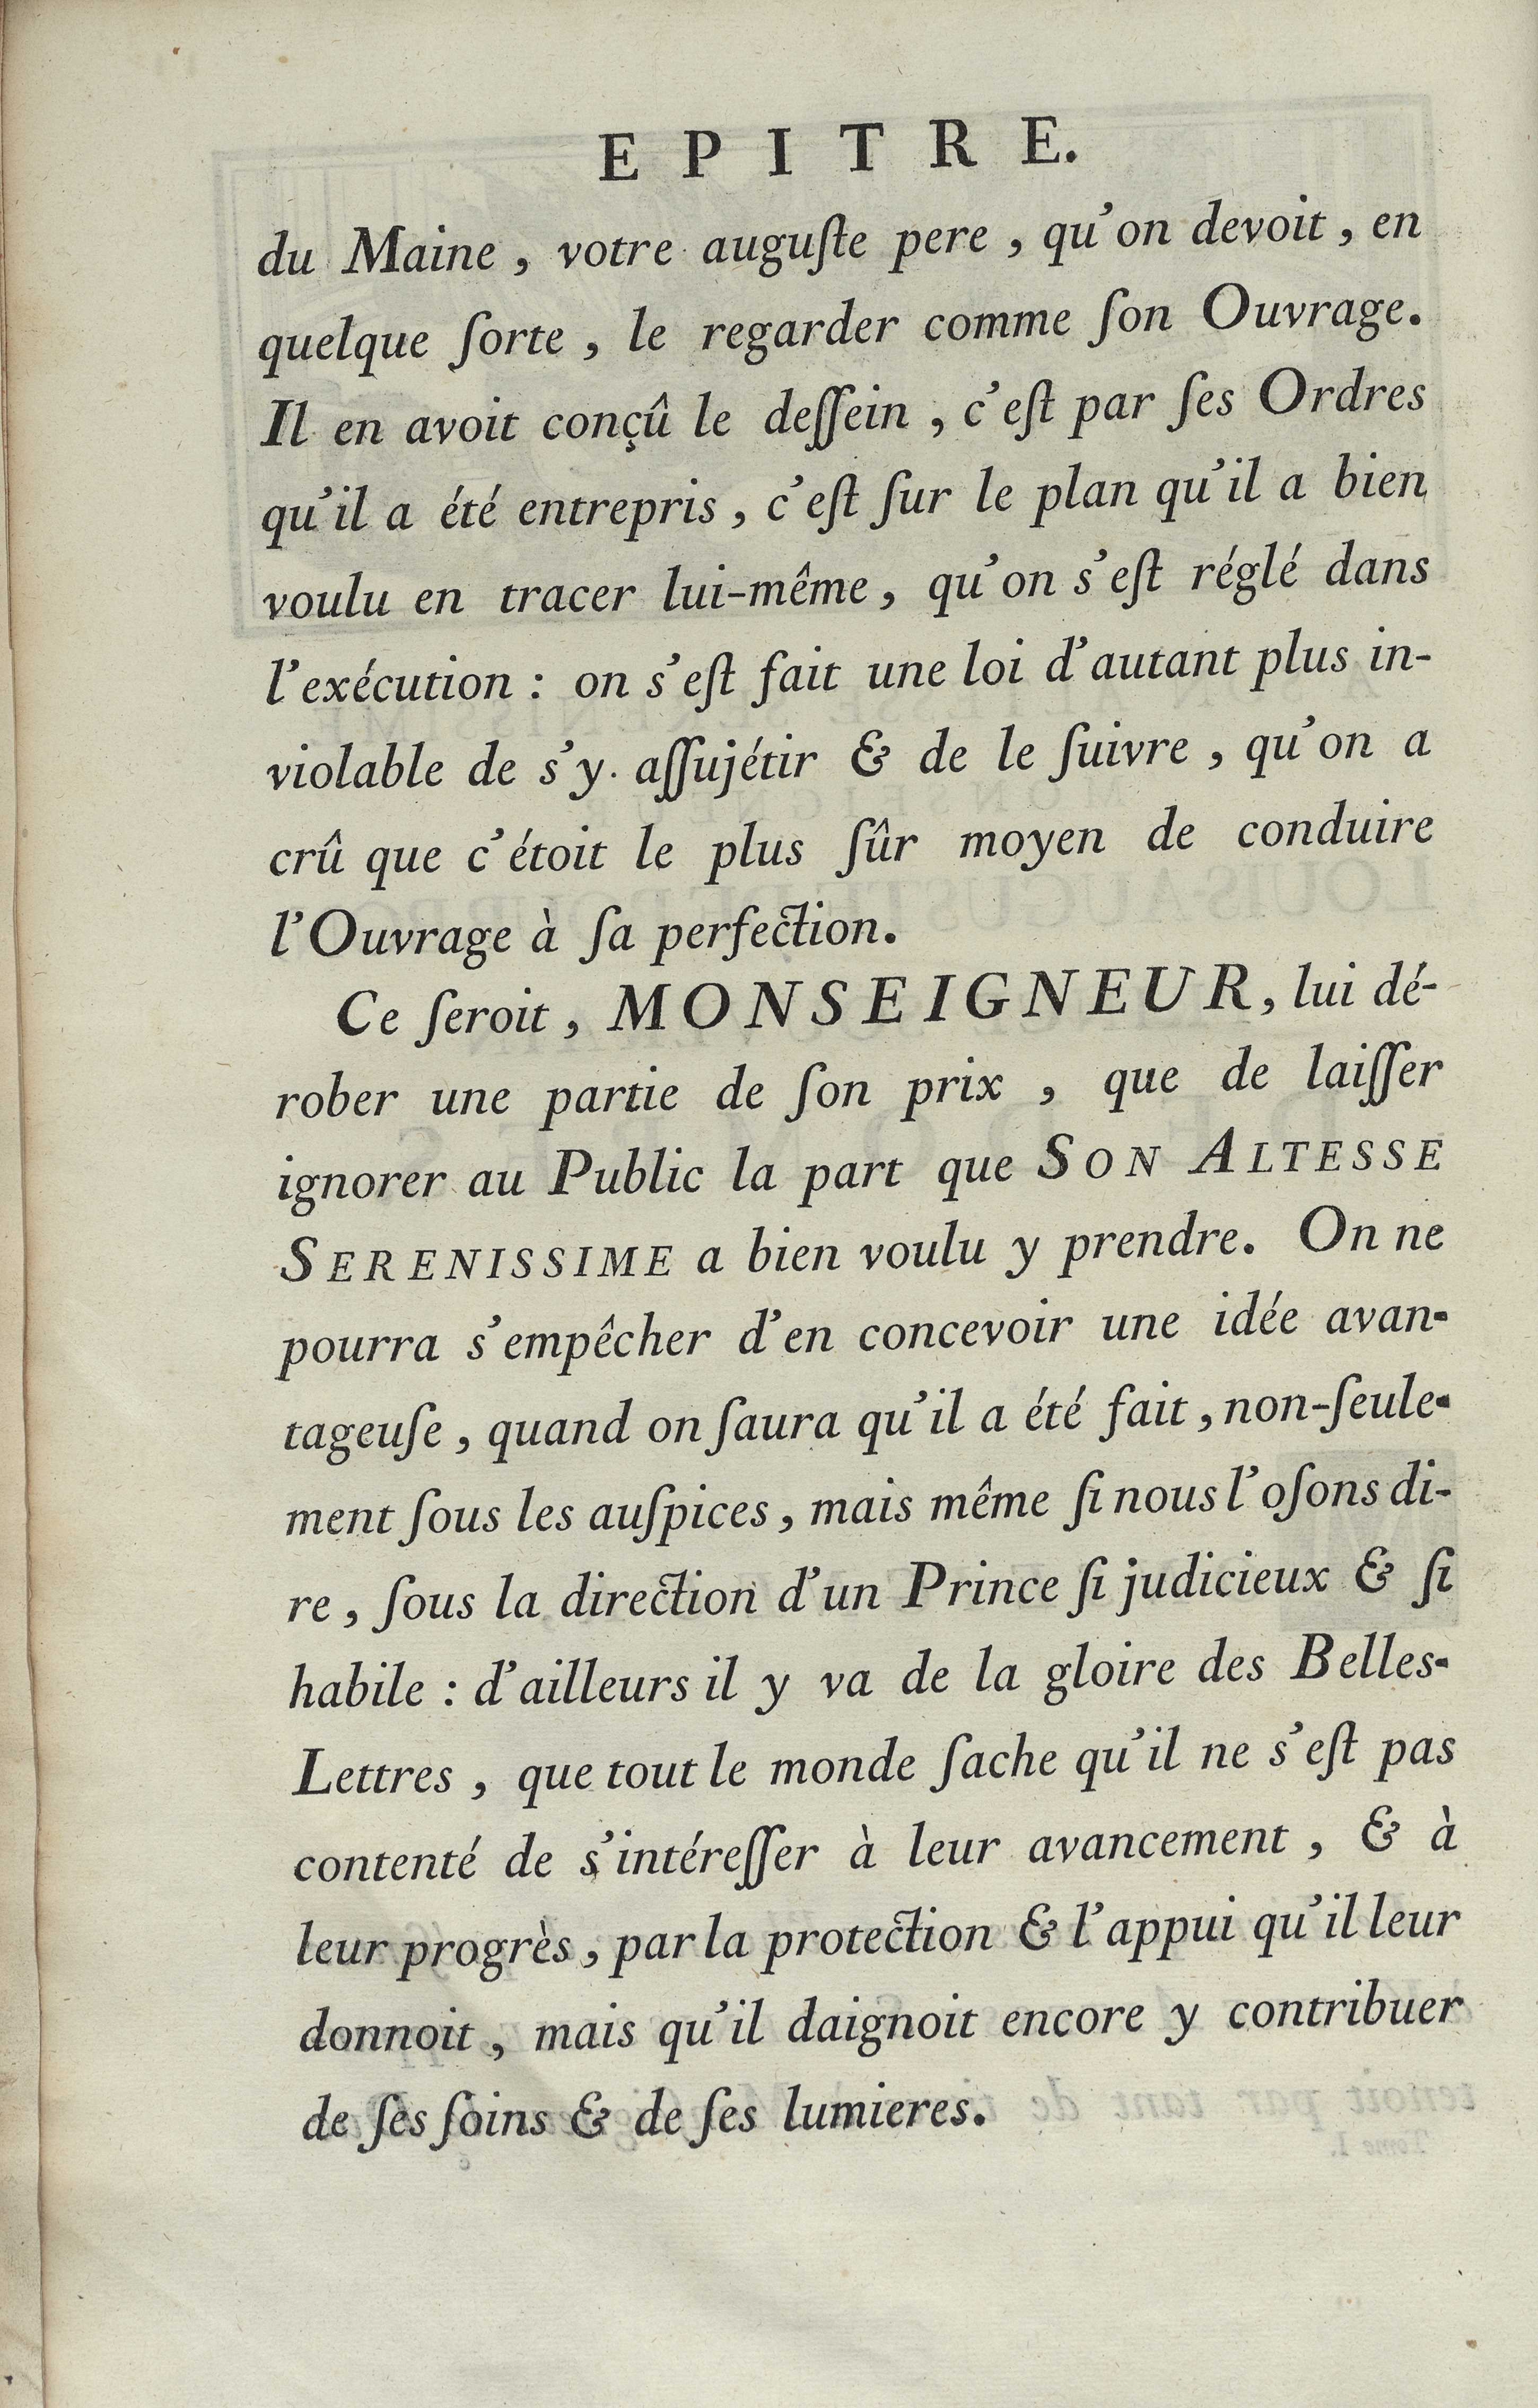 EPITRE.
du Maine, votre auguſte pere, qu'on devoit, en
quelque ſorte, le regarder comme ſon Ouvrage.
Il en avoit conçû le deſſein, c'eſt par ſes Ordres
qu'il a été entrepris, c'eſt ſur le plan qu'il a bien
voulu en tracer lui-même, qu'on s'eſt réglé dans
l'exécution : on s'eſt fait une loi d'autant plus in-
violable de s'y aſſujétir & de le ſuivre, qu'on a
crû que c'étoit le plus ſûr moyen de conduire
l'Ouvrage à ſa perfection.
Ce ſeroit, MONSEIGNEUR, lui dé-
rober une partie de ſon prix, que de laiſſer
ignorer au Public la part que SON ALTESSE
SERENISSIME a bien voulu y prendre. On ne
pourra s'empêcher d'en concevoir une idée avan-
tageuſe, quand on ſaura qu'il a été fait, non-ſeule-
ment ſous les auſpices, mais même ſi nous l'oſons di-
re, ſous la direction d'un Prince ſi judicieux & ſi
habile : d'ailleurs il y va de la gloire des Belles-
Lettres, que tout le monde ſache qu'il ne s'eſt pas
contenté de s'intéreſſer à leur avancement, & à
leur progrès, par la protection & l'appui qu'il leur
donnoit, mais qu'il daignoit encore y contribuer
de ſes ſoins & de ſes lumieres.